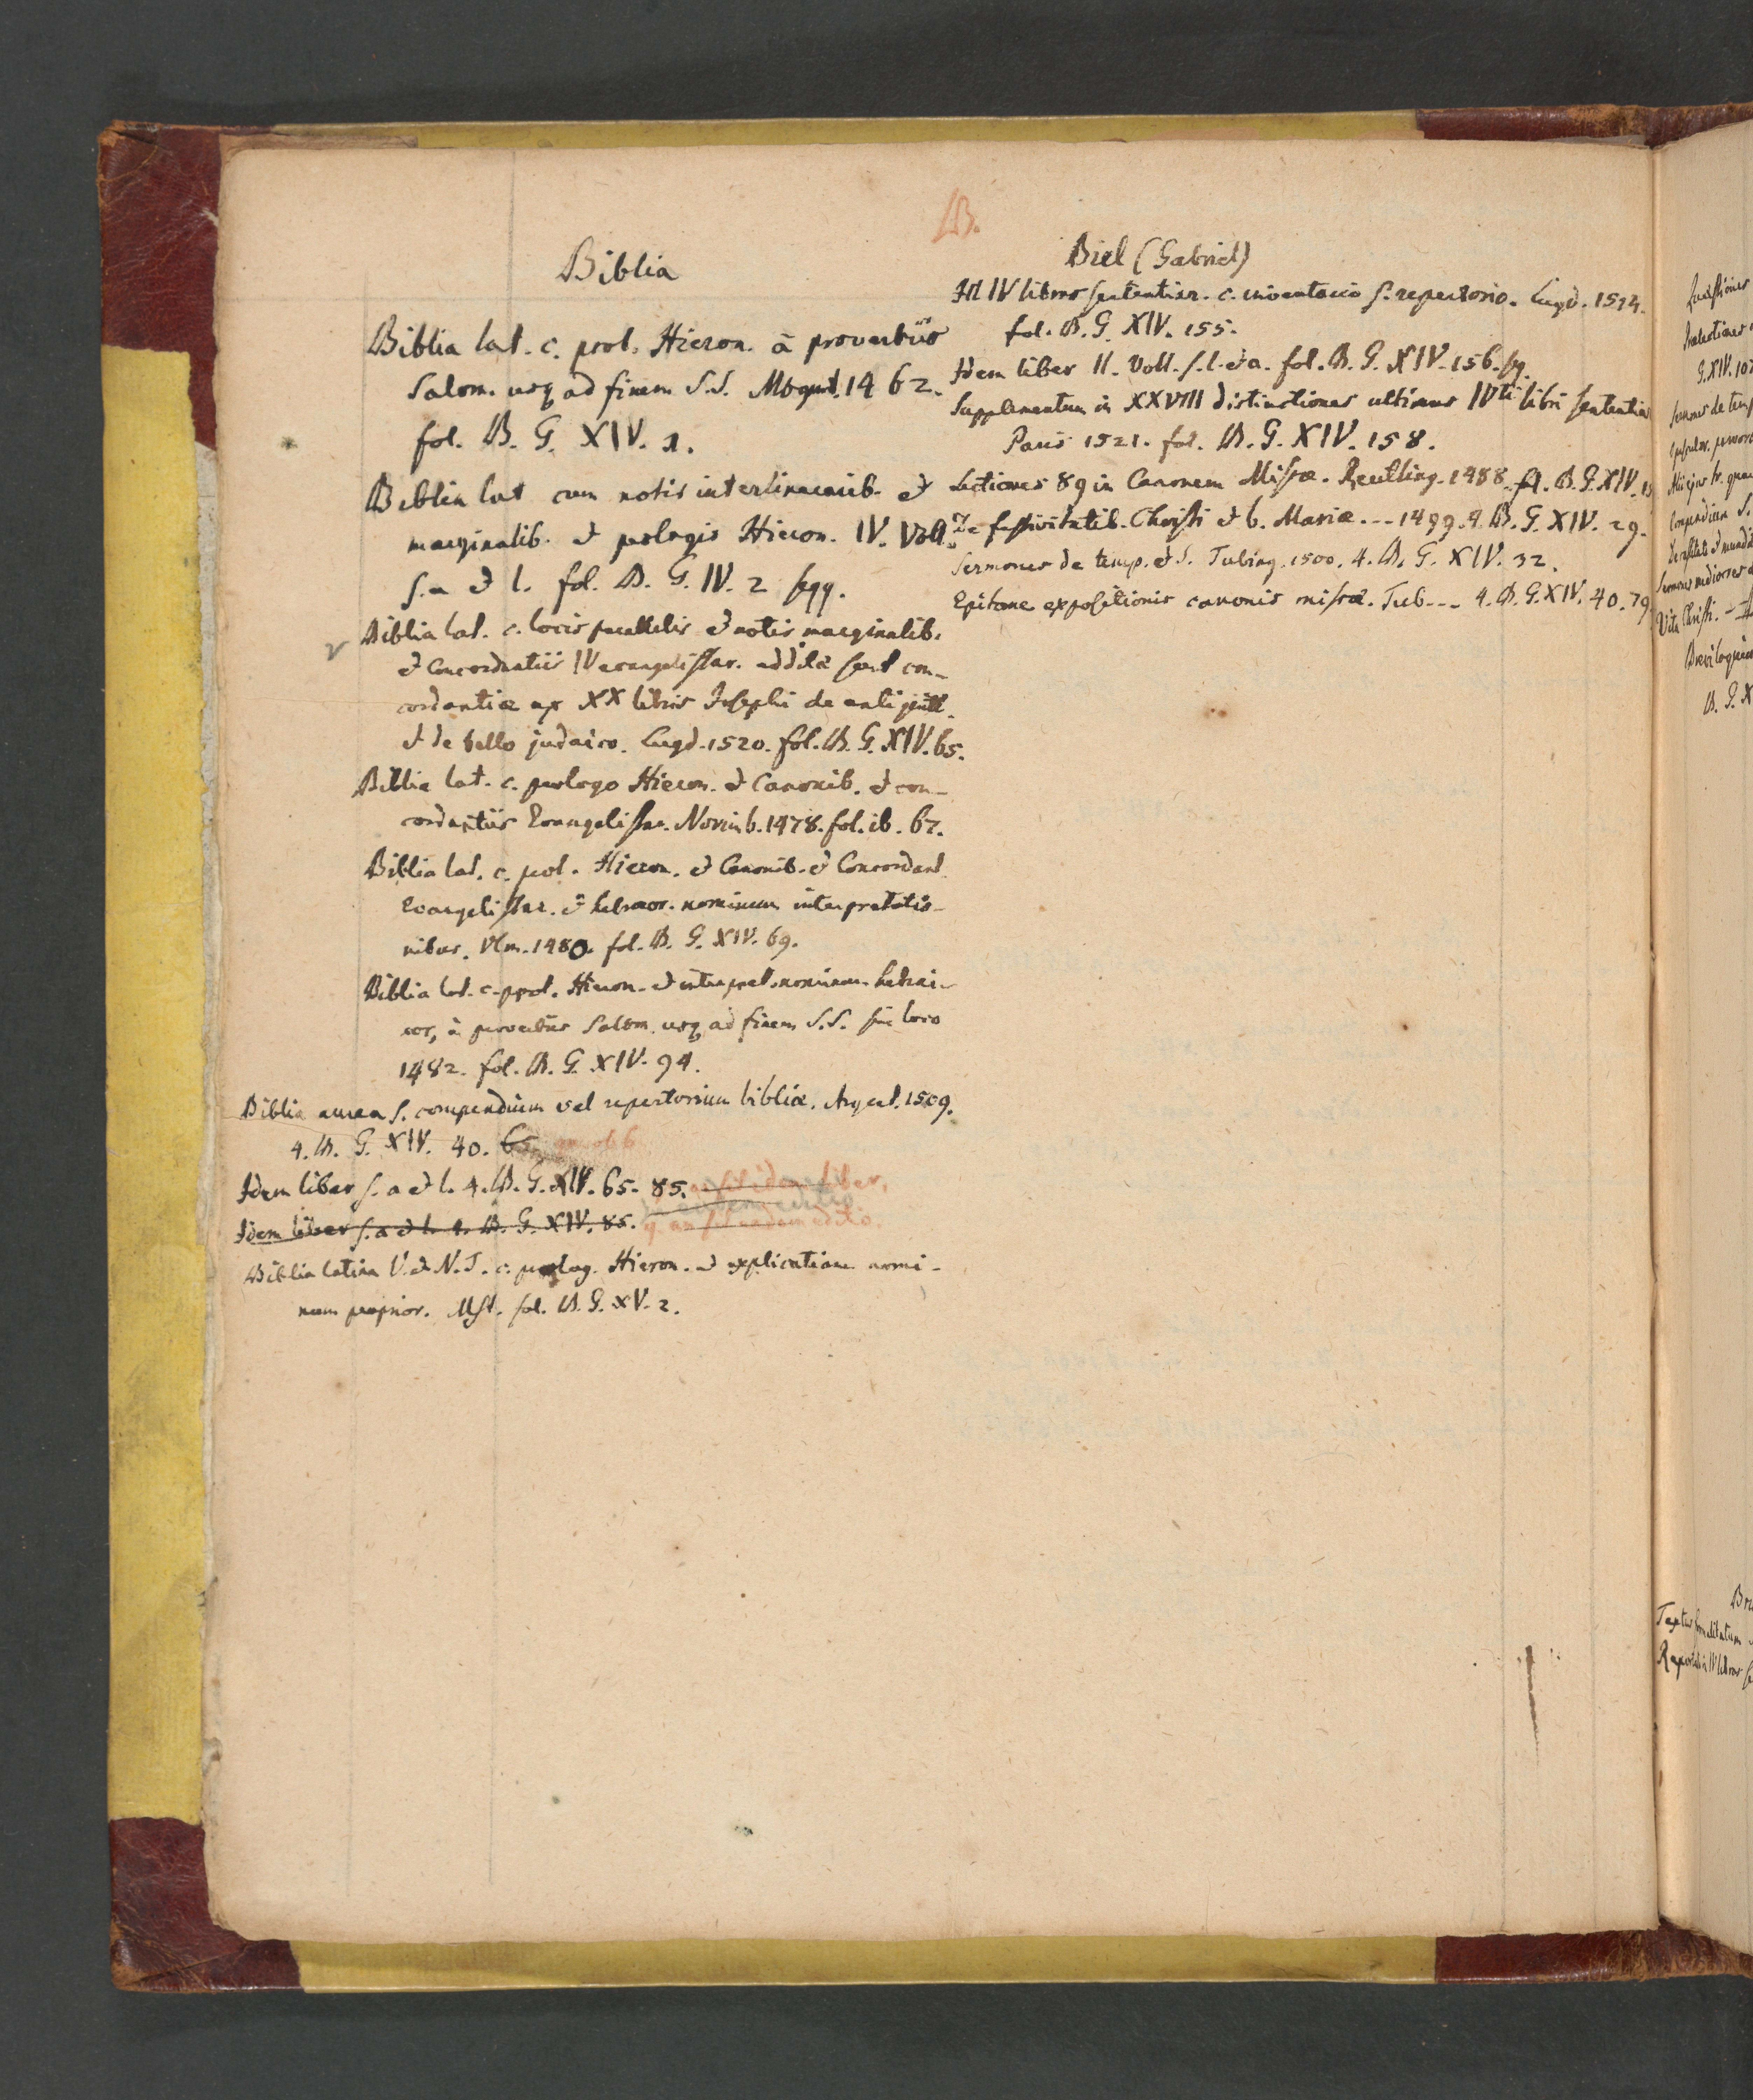 B.
Biblia
Biblia lat. c. prol. Hieron. à proverbiis
Salom. usq ad finem S.S. Mogunt. 1462.
fol. B. G. XIV. 1.
Biblia lat cum notis interlinearib. et
marginalib. et prologis Hieron. IV. Voll.
s. a et l. fol. B. G. IV. 2 sqq.
Biblia lat. c. locis parallelis et notis marginalib.
et Concordantiis IV evangelistar. addita sunt con-
cordantiæ ex XX libris Josephi de antiquitt.
et de bello judaico. Lugd. 1520. fol. B. G. XIV. 65.
Biblia lat. c. prologo Hieron. et Canonib. et con-
cordantiis Evangelistar. Norimb. 1478. fol. ib. 67.
Biblia lat. c. prol. Hieron. et Canonib. et Concordant
Evangelistar. et hebraor. nominum interpretatio-
nibus. Ulm. 1480. fol. B. G. XIV. 69.
Biblia lat. c. prol. Hieron. et interpret. nominum hebrai-
cor, à proverbiis Salom. usq ad finem S.S. sine loco
1482. fol. B. G. XIV. 94.
Biblia aurea s. compendium vel repertorium bibliæ. Argent. 1509.
4. B. G. XIV. 40. 65
Idem liber s. a et l. 4. B. G. XIV. 65. 85. idem liber,
Idem liber s. a et l. 4. B. G. XIV. 85. q an sit eadem editio.
Biblia latina V. et N. T. c. prolog. Hieron. et explicatione nomi-
num proprior. Mst. fol. B. G. XV. 2.
Biel (Gabriel)
In IV libros sententiar. c. inventario s. repertorio. Lugd. 1514.
fol. B. G. XIV. 155.
Idem liber II. Voll. s. l. et a. fol. B. G. XIV. 156. sq.
Supplementum in XXVIII distinctiones ultimas IVti libri sententiar
Paris 1521. fol. B. G. XIV. 158.
Lectiones 89 in Canonem Missæ. Reutling. 1488. fl. B. G. XIV.
De festivitatib. Christi et b. Mariæ. -- 1499. 4. B. G. XIV. 29.
Sermones de temp. et S. Tubing. 1500. 4. B. G. XIV. 32.
Epitome expositionis canonis missæ. Tub -- 4. B. G. XIV. 40. 79
G. XIV. 107
Sermones de temp
Vita Christi. -
B. G. X